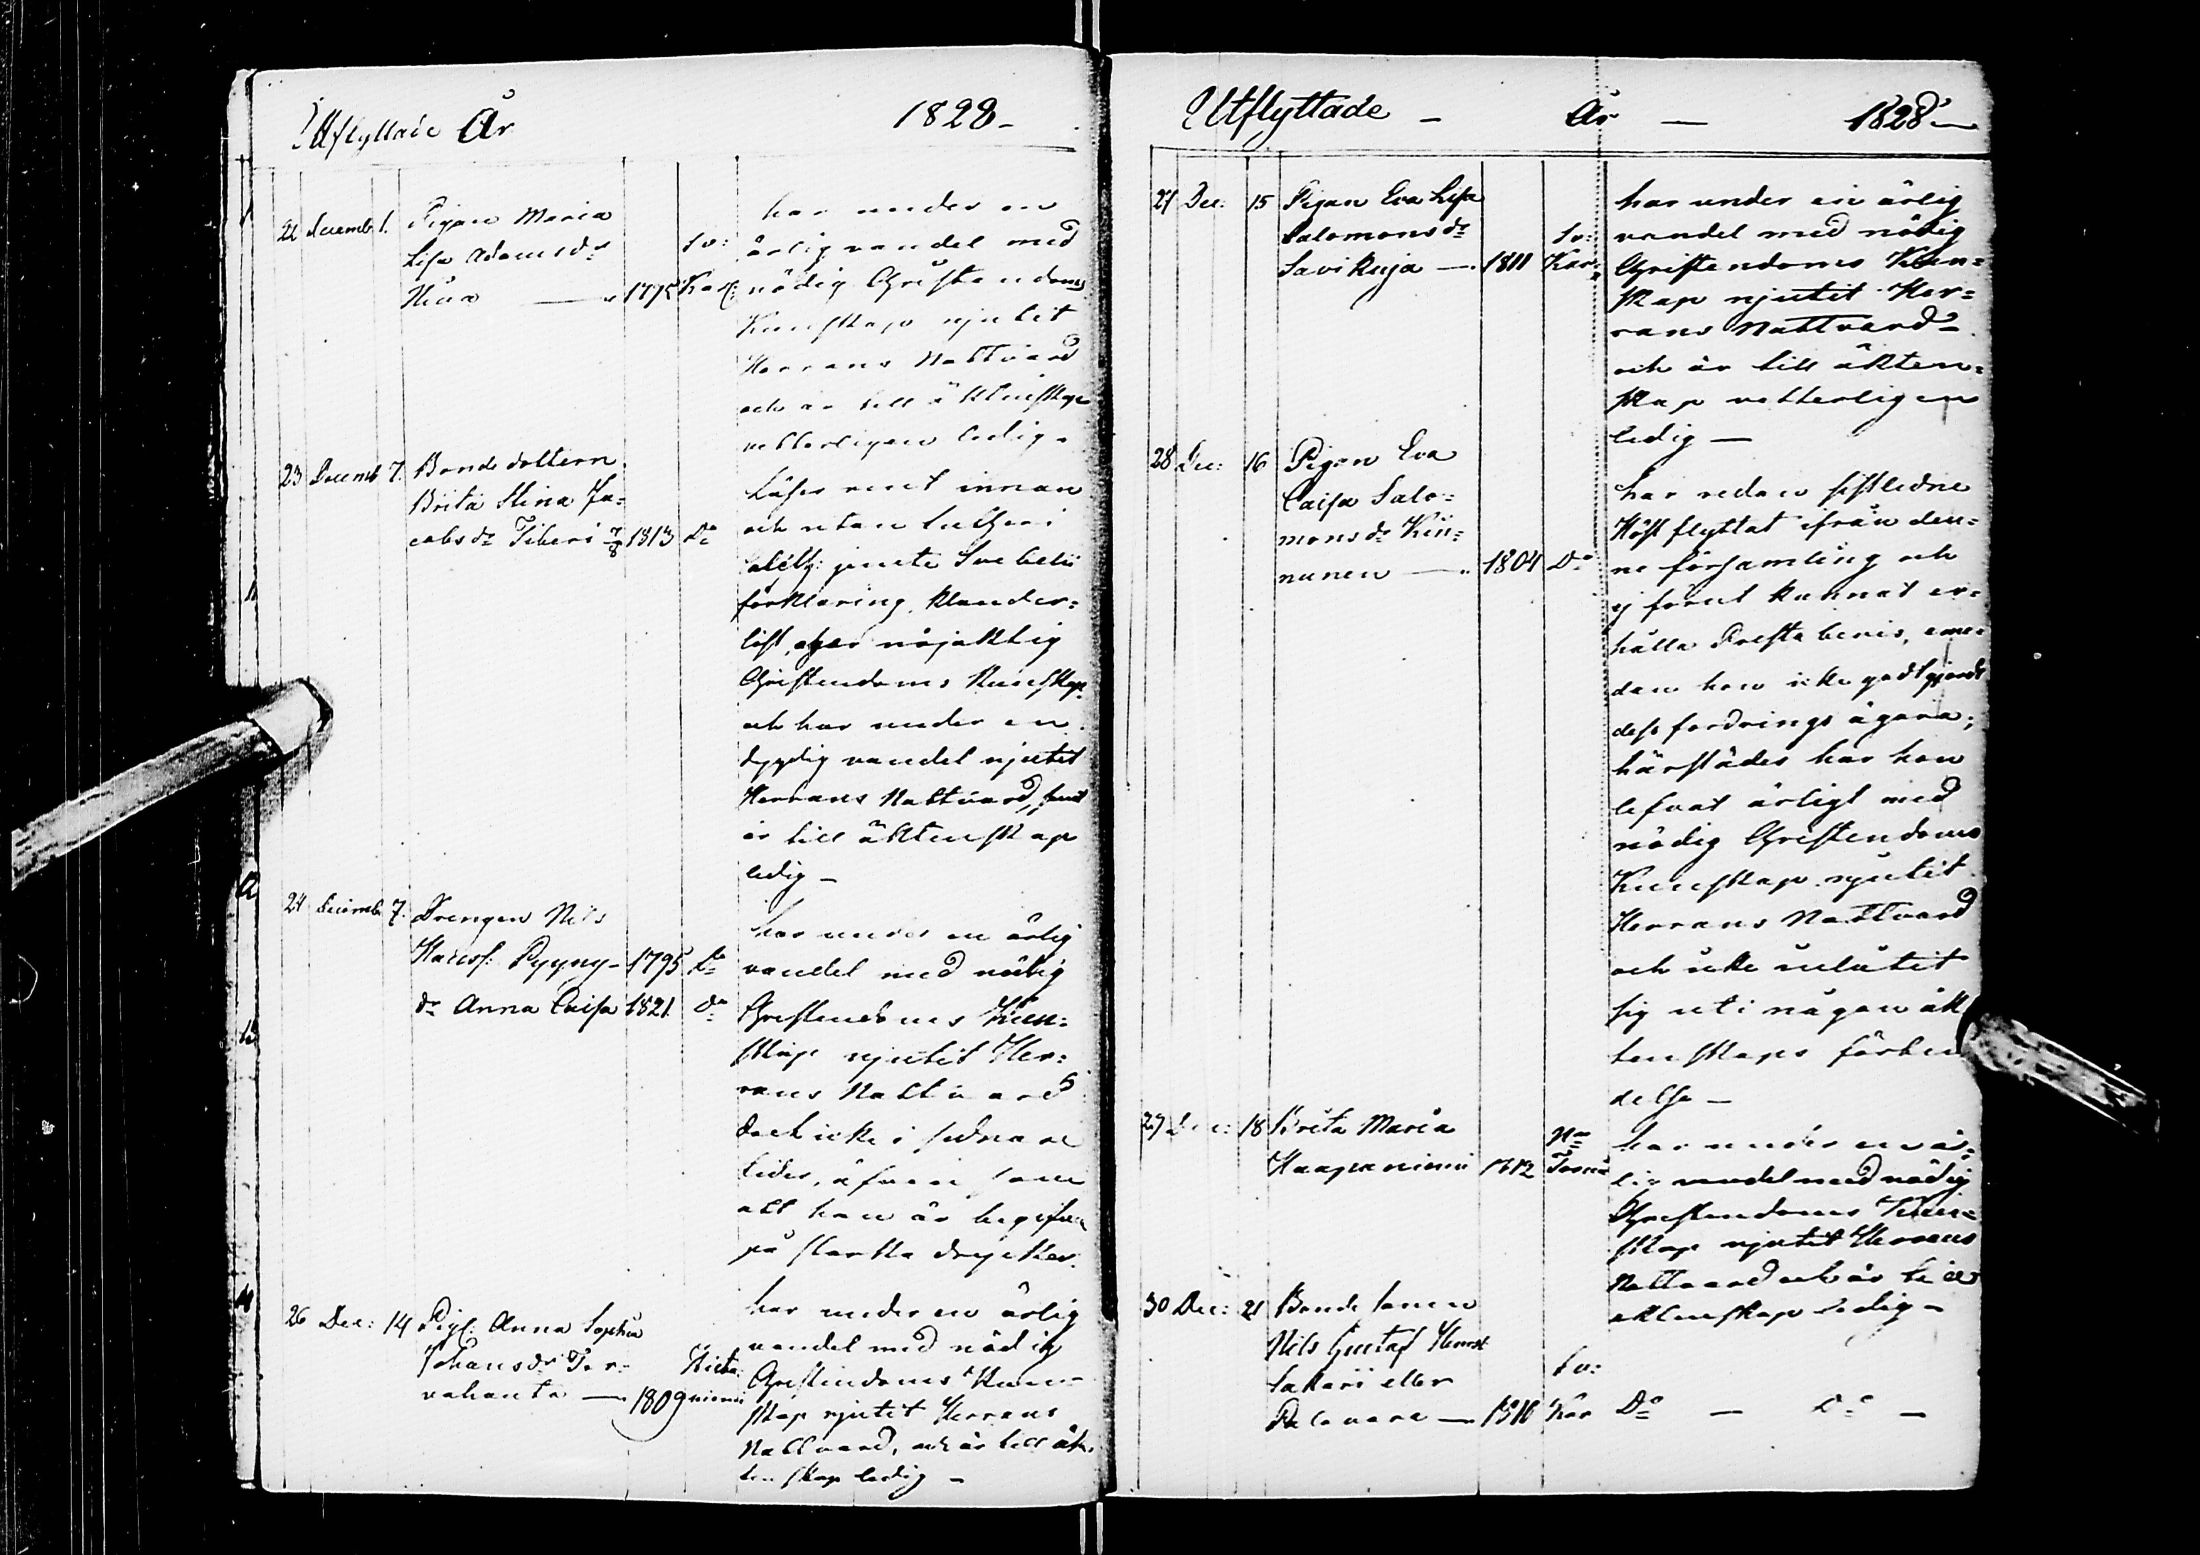 Utflyttade År 1828 -
22 Decemb 1. Pigan Maria
Lisa Adamsdr
1795
Sv:
Kar:
har under en
ärlig vandel med
nödig Christendoms
Kunskap njutit
Herrans Nattvard
och är till äktenskap
vetterligen ledig.
23 Decemb 7. Bondedottern
Brita Stina Ja=
cobsdr Tiberi 7/8 1813 Do
Läser rent innan
och utan Lutheri
Catech: jemte Svebelii
förklaring, klander=
löst, äger nöjaktig
Christendoms Kunskap
och har under en
dygdig vandel njutit
Herrans Nattvard, samt
är till äktenskap
ledig -
24 Decemb 7. Drengen Nils
Hanss: Pyyny - 1795 Do
dr Anna Caisa 1821. Do
har under en ärlig
vandel med nödig
Christendoms Kun=
skap njutit Her=
rans Nattvard
dock icke i sednare
tider, äfven som
att han är begifven
på starka drycker.
26 Dec: 14 Pig: Anna Sophia
Johansdr Ter=
vahauta — 1809
Hieta=
niemi
har under en ärlig
vandel med nödig
Christendoms Kun=
skap njutit Herrans
Nattvard, och är till äk=
tenskap ledig -
Utflyttade - År — 1828 —
27 Dec: 15 Pigan Eva Lisa
Salomonsdr
Savikuja — 1811
Sv:
Kar:
har under en ärlig
vandel med nödig
Christendoms Kun=
skap njutit Her=
rans Nattvard
och är till äkten=
skap vetterligen
ledig —
28 Dec: 16 Pigan Eva
Caisa Salo=
monsdr Kin=
nunen — 1804 Do
har redan sistledne
Höst flyttat ifrån den=
ne församling och
ej förut kunnat er=
hålla Prestabevis, eme=
dan hon icke godtgjordt
dess fordringsägare;
härstädes har hon
lefvat ärligt med
nödig Christendoms
Kunskap njutit
Herrans Nattvard
och icke inlåtit
sig uti någon äk
tenskaps förbin
delse —
29 Dec: 18 Brita Maria
Haapaniemi 1812
Torneå
har under en är=
lig vandel med nödig
Christendoms Kun=
skap njutit Herrans
Nattvard och är till
äktenskap ledig -
30 Dec: 21 Bondesonen
Nils Gustaf Henrss
Sakari eller
Palovara — 1810
Sv:
Kar Do — Do —